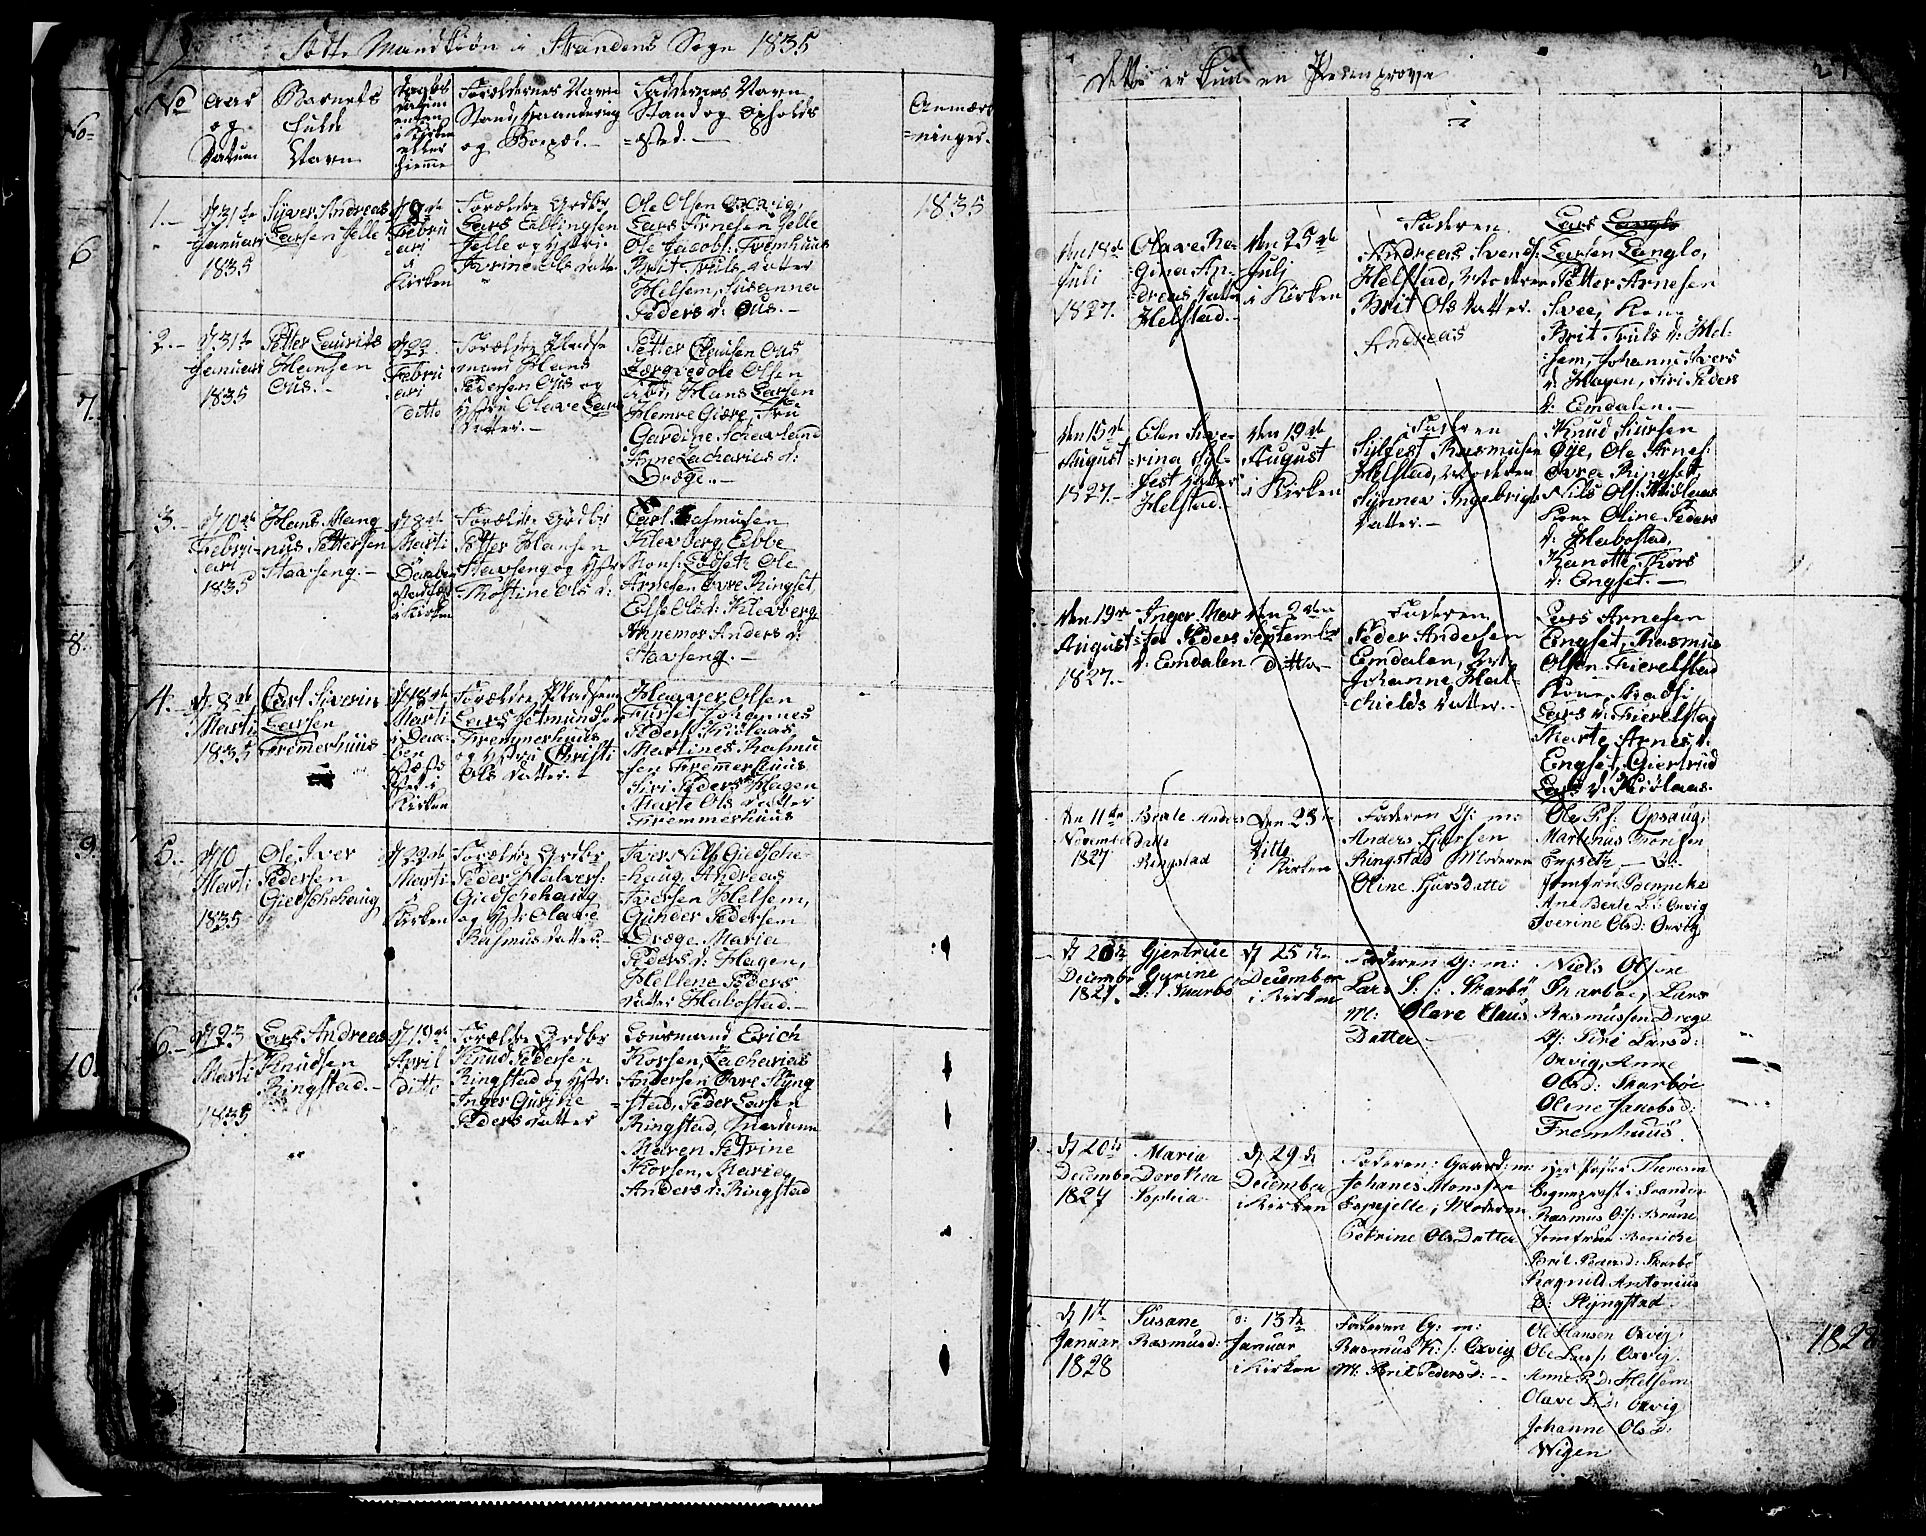 Født Mandkiøn i Strandens Sogn 1835
No
Aar
og
Datum
Barnets
fulde
Navn
Daabs
datum
enten
i Kirken
eller
hiemme
Forældernes Navn
Stand, Haandtering
og Bopæl.
Faddernes Navn
Stand og Opholds
=sted.
Anmærk
=ninger.
1835
1.
d 31te
Januari
1835
Siver Andreas
Larsen Jelle
d 8de
Febru
ari
i
Kirken
Forældre Grdbr
Lars Ellingsen
Jelle og Hstri
Ivrine Ols datter
Ole Olsen Oxvig,
Lars Arnesen Jelle
Ole Jacobs: Fremhuus
Brit Truls datter
Helsem, Susanna
Peders d: Ous.
2.
d 31te
Januari
1835
Petter Laurits
Hansen
Ous.
d 22
Febru
ari
ditto
Forældre Pladse
mand Hans
Pedersen Ous og
Hstru Olave Lars
datter.
Petter Clausen Ous
Ole Olsen
Hans Larsen
Hemre Giære, Fru
Gardine
Anne Zacharias d:
Dræge.
3.
d 10de
Febru
ari
1835
Hans Mang
nus Pettersen
Stavseng.
d 8de
Marti
Daaben
i Kirken
Forældre Grdbr
Petter Hansen
Stavseng og Hstr
Thostine Ols d:
Carl Rasmusen
Klevberg Ebbe
Mons: Lødseth Ole
Arnesen Øvre Ringset,
Else Ols d: Klevberg
Annemor Anders d:
Stavseng.
4.
d 8de
Marti
1835
Carl Siverin
Larsen
Fremerhuus
d 18de
Marti
i Daa
ben
i
Kirken
Forældre Pladsem
Lars Gutmundsen
Fremmerhuus
og Hstru Christi
Ols datter.
Hagger Olsen
Fursæt Johannes
Peders: Kiølaas,
Martines Rasmu
sen Fremerhuus
Siri Peders d Hagen
Marte Ols datter
Fremmerhuus
5.
d 10
Marti
1835
Ole Iver
Pedersen
Giedschehaug
d 22de
Marti
i
Kirken
Forældre Grdbr
Peder Halvers:
Giedschehaug
og Hstr Olave
Rasmus datter.
Iver Nils Giedsche
haug, Andreas
Iversen Helsem,
Gunder Pedersen
Dræge Maria
Peders d: Hagen,
Hellene Peders
datter Habostad.
6.
d 23
Marti
1835
Lars Andreas
Knudsen
Ringstad.
d 19de
April
ditto
Forældre Grdbr
Knud Pedersen
Ringstad og Hstr:
Inger Gurine
Peders datter
Lensmand Erich
Korsen, Zacharias
Andersen Øvre Ryng
stad, Peder Larsen
Ringstad, Madamm
Maren Petrine
Korsen, Maria
Anders d: Ringstad
Dette er kun en Penneprøve
Den 18de
Juli
1827.
Olave Re
gina An
dreas datter
Helstad.
den 25de
Julj
i Kirken
Faderen
Andreas Svends:
Helstad, Moderen
Brit Ols datter.
Andreas
Lars Langlo
Larsen Langlo,
Petter Arnesen
Svee, Kone
Brit Truls d: Hel
sem, Johanne Ivers
d: Hagen, Siri Peders
d: Emdalen.
Den 15de
August
1827.
Elen Sive
rina Syl
fest datter
Helstad.
den 19de
August
i Kirken
Faderen
Sylfest Rasmusen
Helstad, Moderen
Synnev Ingebrigts
datter.
Knud Siursen
Øye, Ole Arnes:
Øvre Ringset
Nils Ols: Kiølaas
Kone Oline Peders
d: Habostad,
Hanotte Kors
d: Engset.
Den 19de
August
1827.
Inger Mar
the Peders
d: Emdalen
den 2den
September
ditto
Faderen
Peder Andersen
Emdalen, Hstr
Johanne Hal
chields datter.
Lars Arnesen
Engset, Rasmus
Olsen Fierelstad
Kone Madsi
Lars d: Fierelstad
Marte Arnes d:
Engset, Giertrud
Lars d: Kiølaas.
Den 11te
November
1827
Berte Anders
datte
Ringstad
den 23de
Ditto
i Kirken
Faderen G: m:
Anders Sjursen
Ringstad Moderen
Oline Sjursdatte
Ole P.f: Opsaug,
Martinus
Engseth
Jomfru Bennecke
Ane Berte L: d: Oxvig
Iverine Olsd: Oxvig
d 26de
December
1827.
Gjertrue
Gurine
L: d Skarbø
d 25de
December
i Kirken
Faderen G: m:
Lars S: f: Skarbø
M: Olave Claus
Datter
Niels Olsøn
Skarbøe, Lars
Rasmussen Drege
Siri Larsd:
Oxvig, Anne
Olsd: Skarbøe
Oline Jacobsd:
Fremhuus.
d 20de
December
1827
Maria
Dorothea
Sophia
d 29de
December
i Kirken
Faderen: Gaard: m:
Johanes Monssen
Espejelle, Moderen
Petrine Olsdatter
Hr: Pastor Thoresen
Sogneprest i Stranden
Rasmus Ols: Brune
Jomfrue Beniche
Brit Pedersd: Skarbø
Ragnild Antonius
D: Ryngstad.
d 1te
Januar
1828
Susane
Rasmusd:
d: 13de
Januar
i Kirken
Faderen G: m:
Rasmus K: f: Oxvig
M: Brit Peders d:
Ole Hansen Oxvig
Ole Lars f: Oxvig.
Anne P: D: Helsem
Olave L: D: Oxvig
Johanne Ols D:
Wigen
1828
6
6
7.
8.
9.
10.